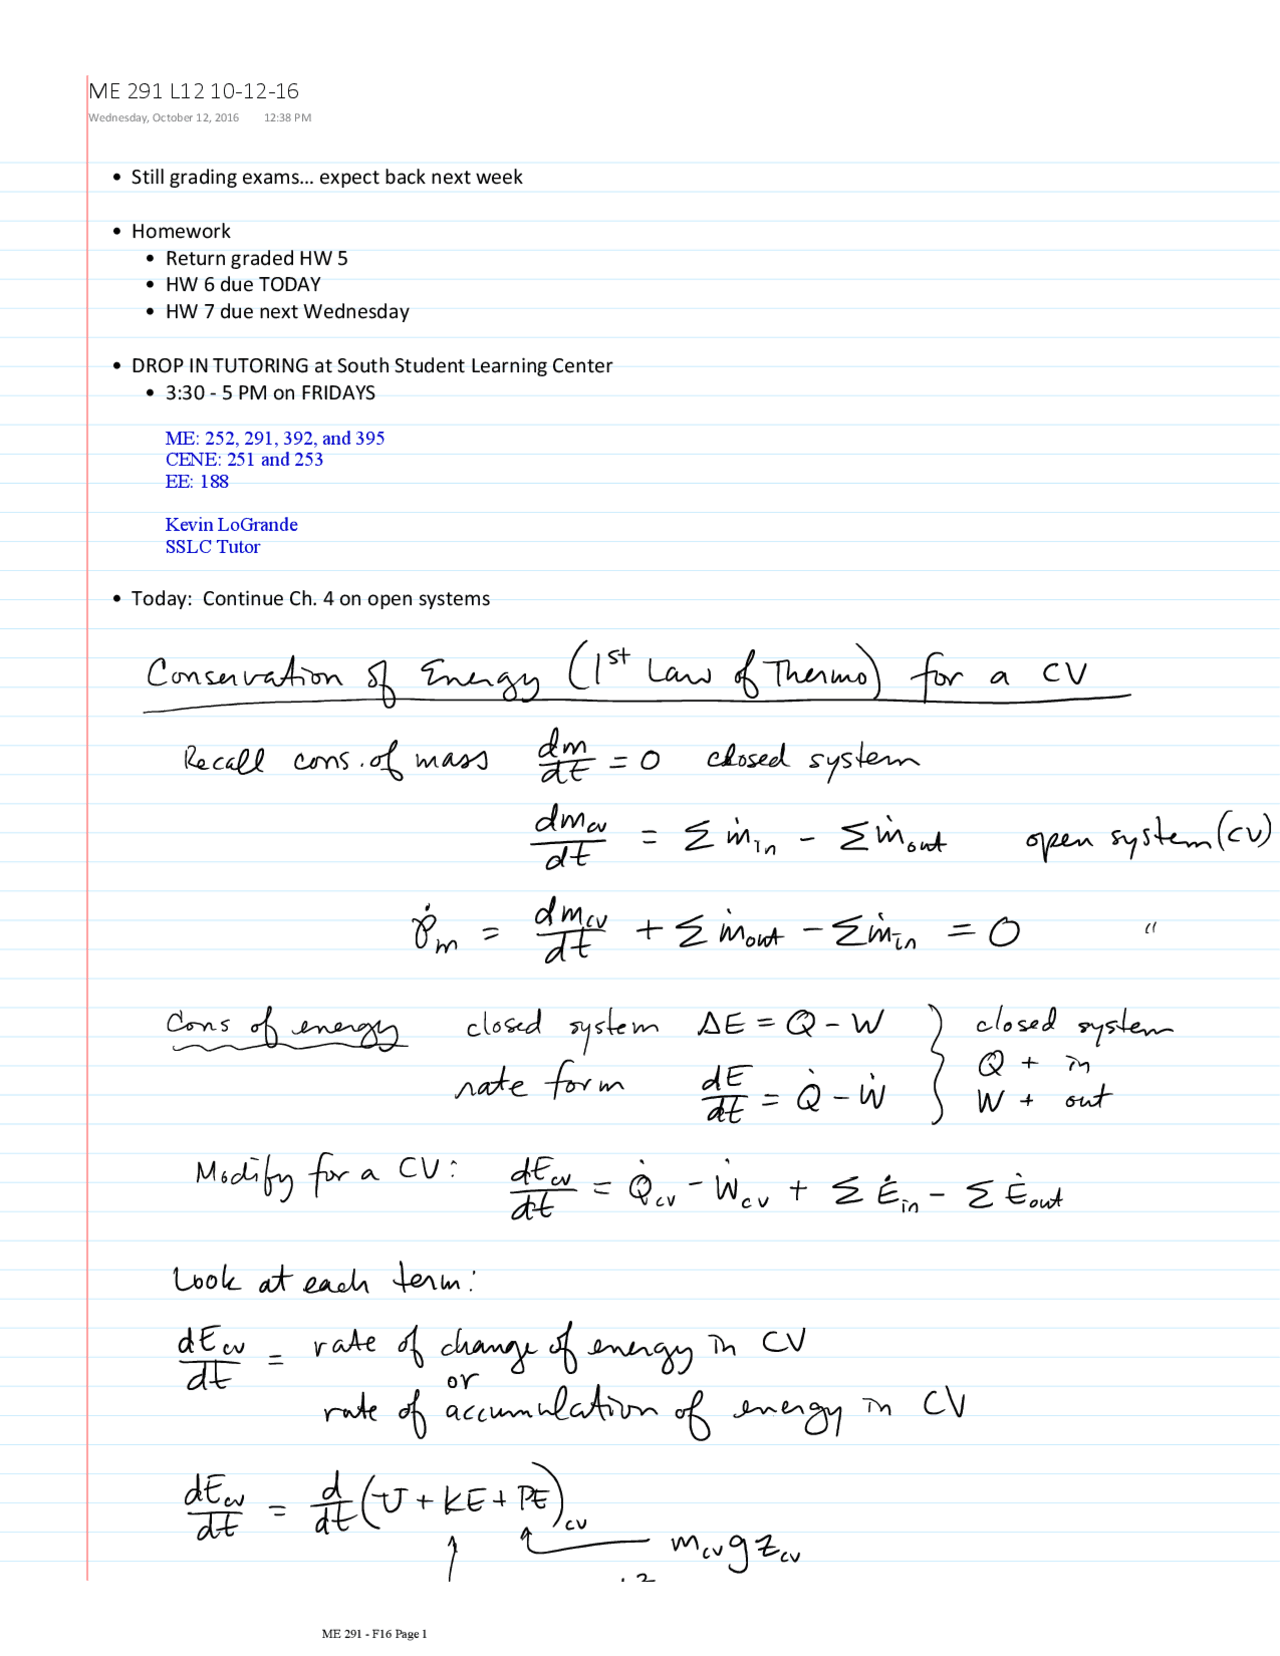 ME 291 L12 10-12-16
Wednesday, October 12, 2016 12:38 PM
• Still grading exams... expect back next week
• Homework
• Return graded HW 5
• HW 6 due TODAY
• HW 7 due next Wednesday
• DROP IN TUTORING at South Student Learning Center
• 3:30 - 5 PM on FRIDAYS
ME: 252, 291, 392, and 395
CENE: 251 and 253
EE: 188
Kevin LoGrande
SSLC Tutor
• Today: Continue Ch. 4 on open systems
Conservation of Energy (1st Law of Thermo) for a CV
Recall cons. of mass dm/dt = 0 closed system
dm_cv/dt = Σ ṁ_in - Σ ṁ_out open system (CV)
γ̇_m = dm_cv/dt + Σ ṁ_out - Σ ṁ_in = 0 "
Cons of energy closed system ΔE = Q - W } closed system
Q + in
rate form dE/dt = Q̇ - Ẇ W + out
Modify for a CV: dE_cv/dt = Q̇_cv - Ẇ_cv + Σ Ė_in - Σ Ė_out
Look at each term:
dE_cv/dt = rate of change of energy in CV
or
rate of accumulation of energy in CV
dE_cv/dt = d/dt (U + KE + PE)_cv
m_cv g z_cv
ME 291 - F16 Page 1